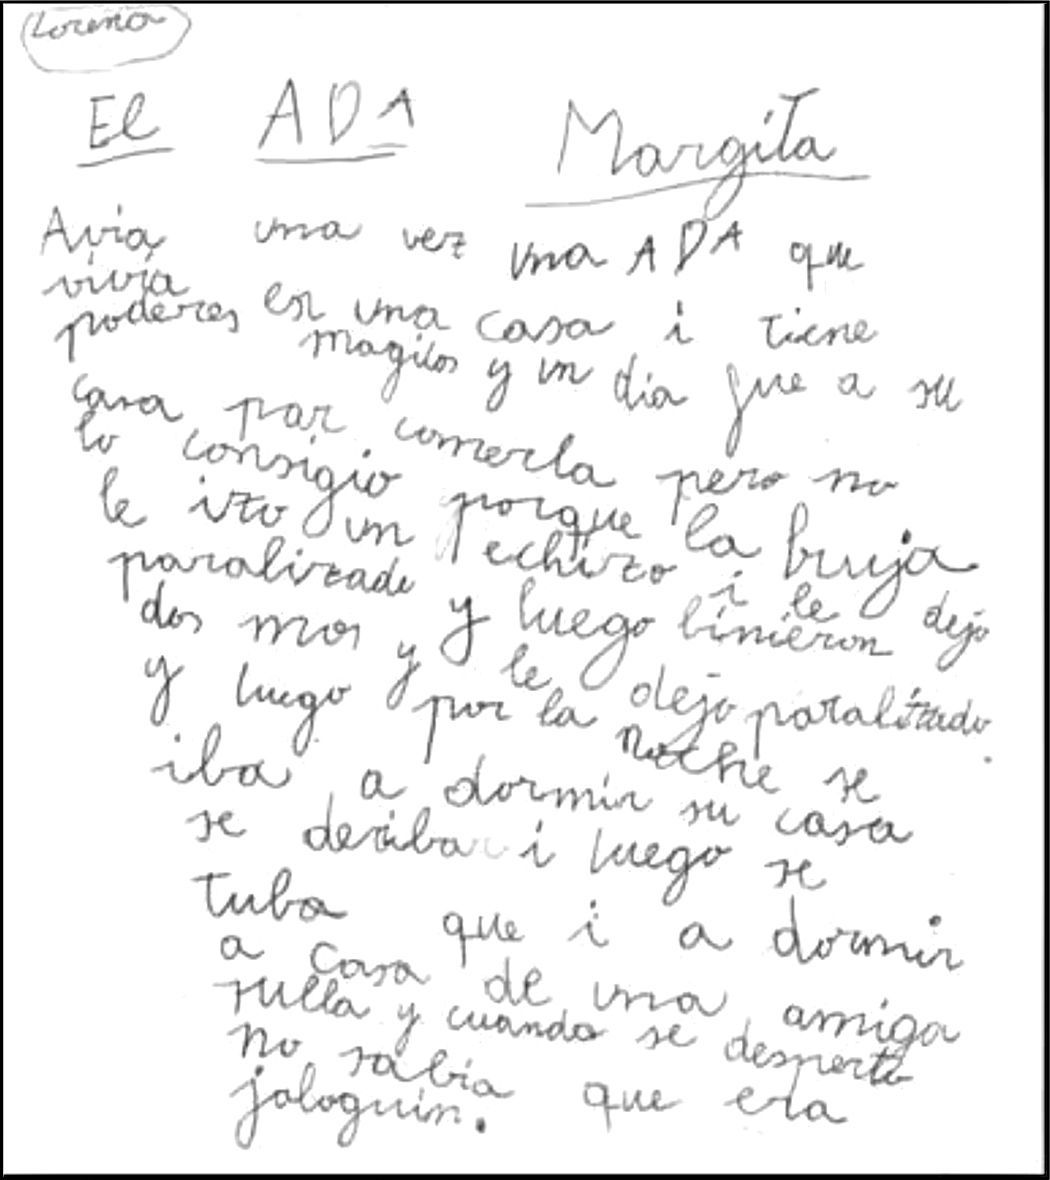 Lorena
El ADA Margita
Avia una vez una ADA que
vivia en una casa i tiene
poderes magicos y un dia fue a su
casa par comerla pero no
lo consigio porque la bruja
le izo un echizo i le dejo
paralizado y luego binieron
dos mos y le dejo paralizado.
y luego por la noche se
iba a dormir su casa
se deriba i luego se
tuba que i a dormir
a casa de una amiga
sulla y cuando se desperto
no sabia que era
jaloguin.